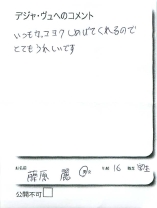 デジャ・ヴュへのコメント
いつもカッコヨクしあげてくれるので
とてもうれしいです
お名前 藤原 麗 男・女 年齢 16 職業 学生
公開不可